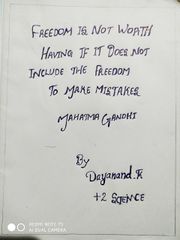 FREEDOM IS NOT WORTH
HAVING IF IT DOES NOT
INCLUDE THE FREEDOM
TO MAKE MISTAKES
MAHATMA GANDHI
By
Dayanand.K
+2 SCIENCE
REDMI NOTE 5 PRO
AI DUAL CAMERA